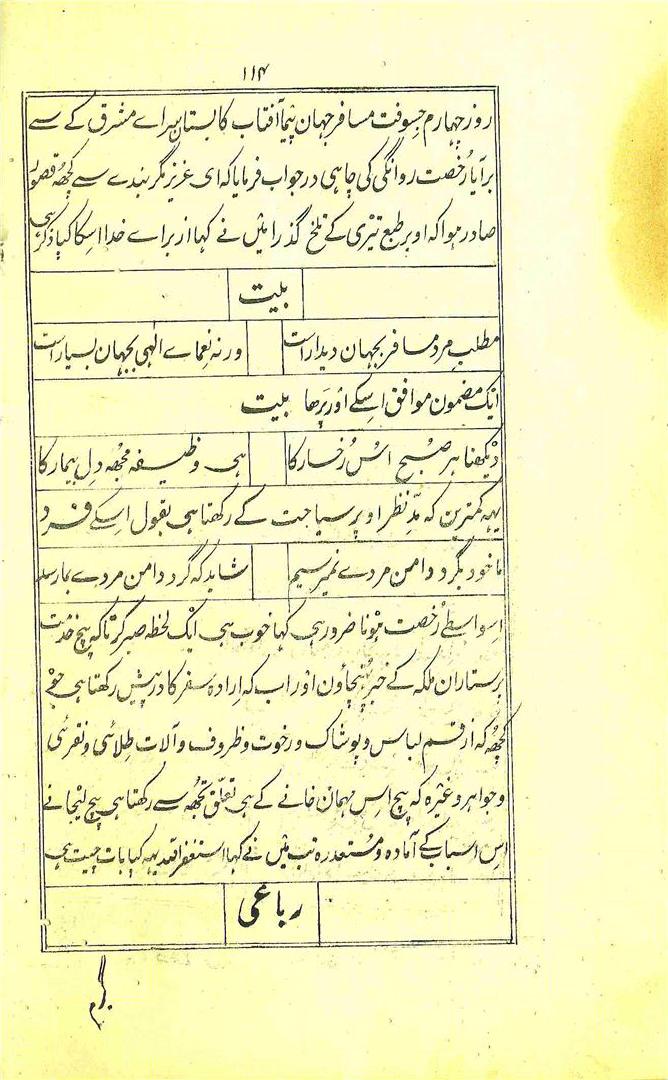 ۱۱۴
روز چہارم جسوقت مسافر جہان پیما آفتاب کا بستان سراے مشرق کے سے
برآیا رُخصت روانگی کی چاہی در جواب فرمایا کہ ای عزیز مگر بندے سے کچھہ قصور
صادر ہوا کہ اوپر طبع تیری کے تلخ گذرا میں نے کہا از براے خدا اسکا کیا ذکر ہی
بیت
مطلب مرد مسافر بجہان دیدار است
ورنہ نعماے الٰہی بجہان بسیار است
ایک مضمون موافق اسکے اور پڑھا بیت
دیکھنا ہر صبح اُس رُخسار کا
ہی وظیفہ مجھہ دلِ بیمار کا
یہہ کمترین کہ مدِّ نظر اوپر سیاحت کے رکھتا ہی بقول اسکے فرد
ما خود بگرد دامن مردے نمیرسیم
شاید کہ گرد دامن مردے بما رسد
اِسواسطے رُخصت ہونا ضرور ہی کہا خوب ہی ایک لحظہ صبر کر تاکہ بیچ خدمت
پرستاران ملکہ کے خبر پُہنچاؤن اور اب کہ اِرادہ سفر کا درپیش رکھتا ہی جو
کچھہ کہ از قسم لباس و پوشاک و رخوت و ظروف و آلات طِلائی و نقرئی
و جواہر وغیرہ کہ بیچ اِس مہمان خانے کے ہی تعلّق تجھہ سے رکھتا ہی بیچ لیجانے
اِس اسباب کے آمادہ و مُستعد رہ تب میں نے کہا استغفراللہ یہہ کیا بات چیت ہی
رباعی